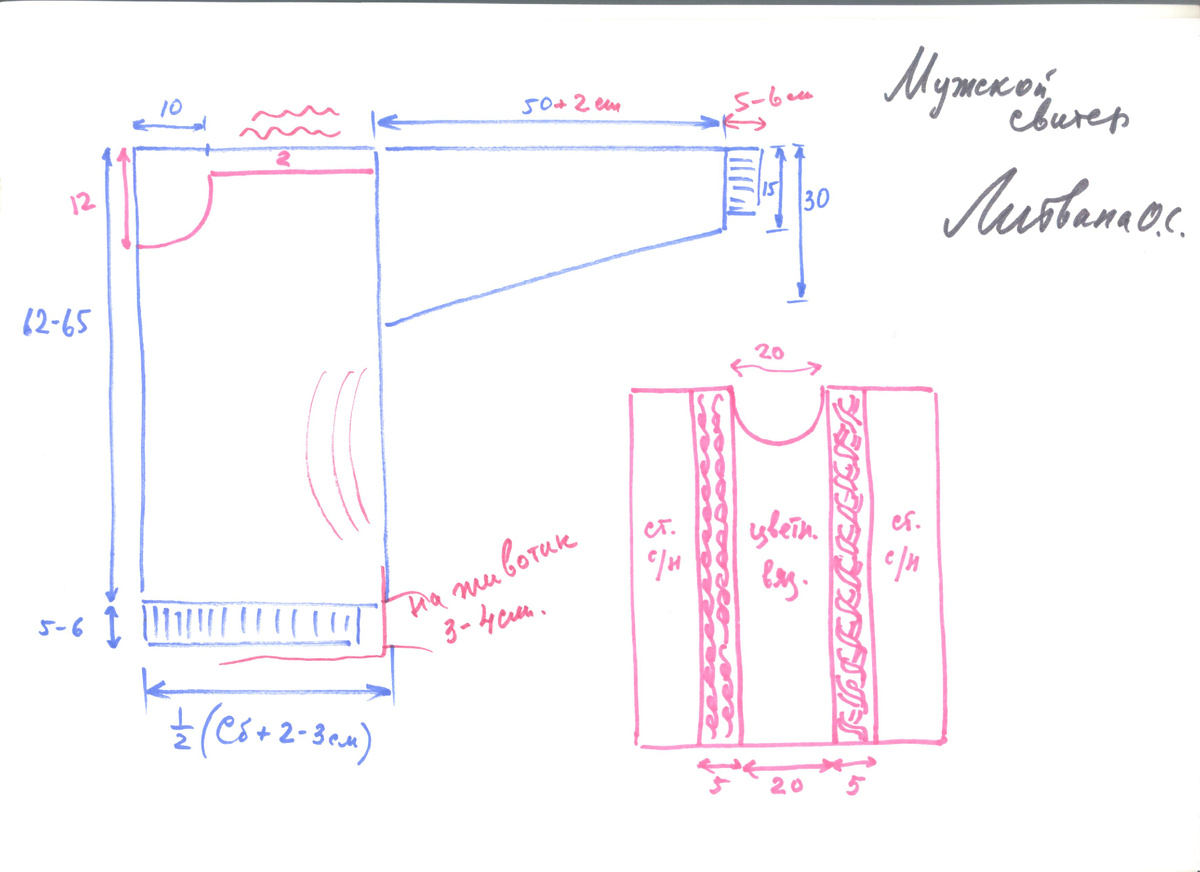 Мужской
свитер
Литвина О.С.
10
50+2 см
5-6 см
12
2
15
30
62-65
20
ст.
с/н
цветн.
вяз.
ст.
с/н
на животик
3-4 см.
5-6
1/2 (Сб + 2-3 см)
5
20
5